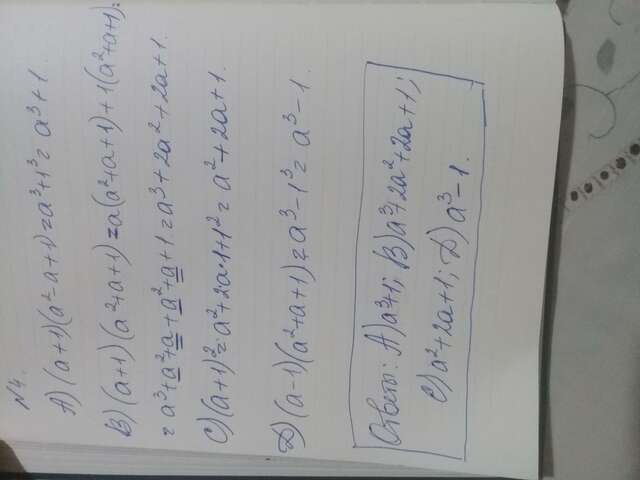 №4.
А) (a+1)(a²-a+1)=a³+1³=a³+1.
В) (a+1)(a²+a+1)=a(a²+a+1)+1(a²+a+1)=
=a³+a²+a+a²+a+1=a³+2a²+2a+1.
С) (a+1)²=a²+2a·1+1²=a²+2a+1.
Д) (a-1)(a²+a+1)=a³-1³=a³-1.
Ответ: А) a³+1; В) a³+2a²+2a+1;
С) a²+2a+1; Д) a³-1.